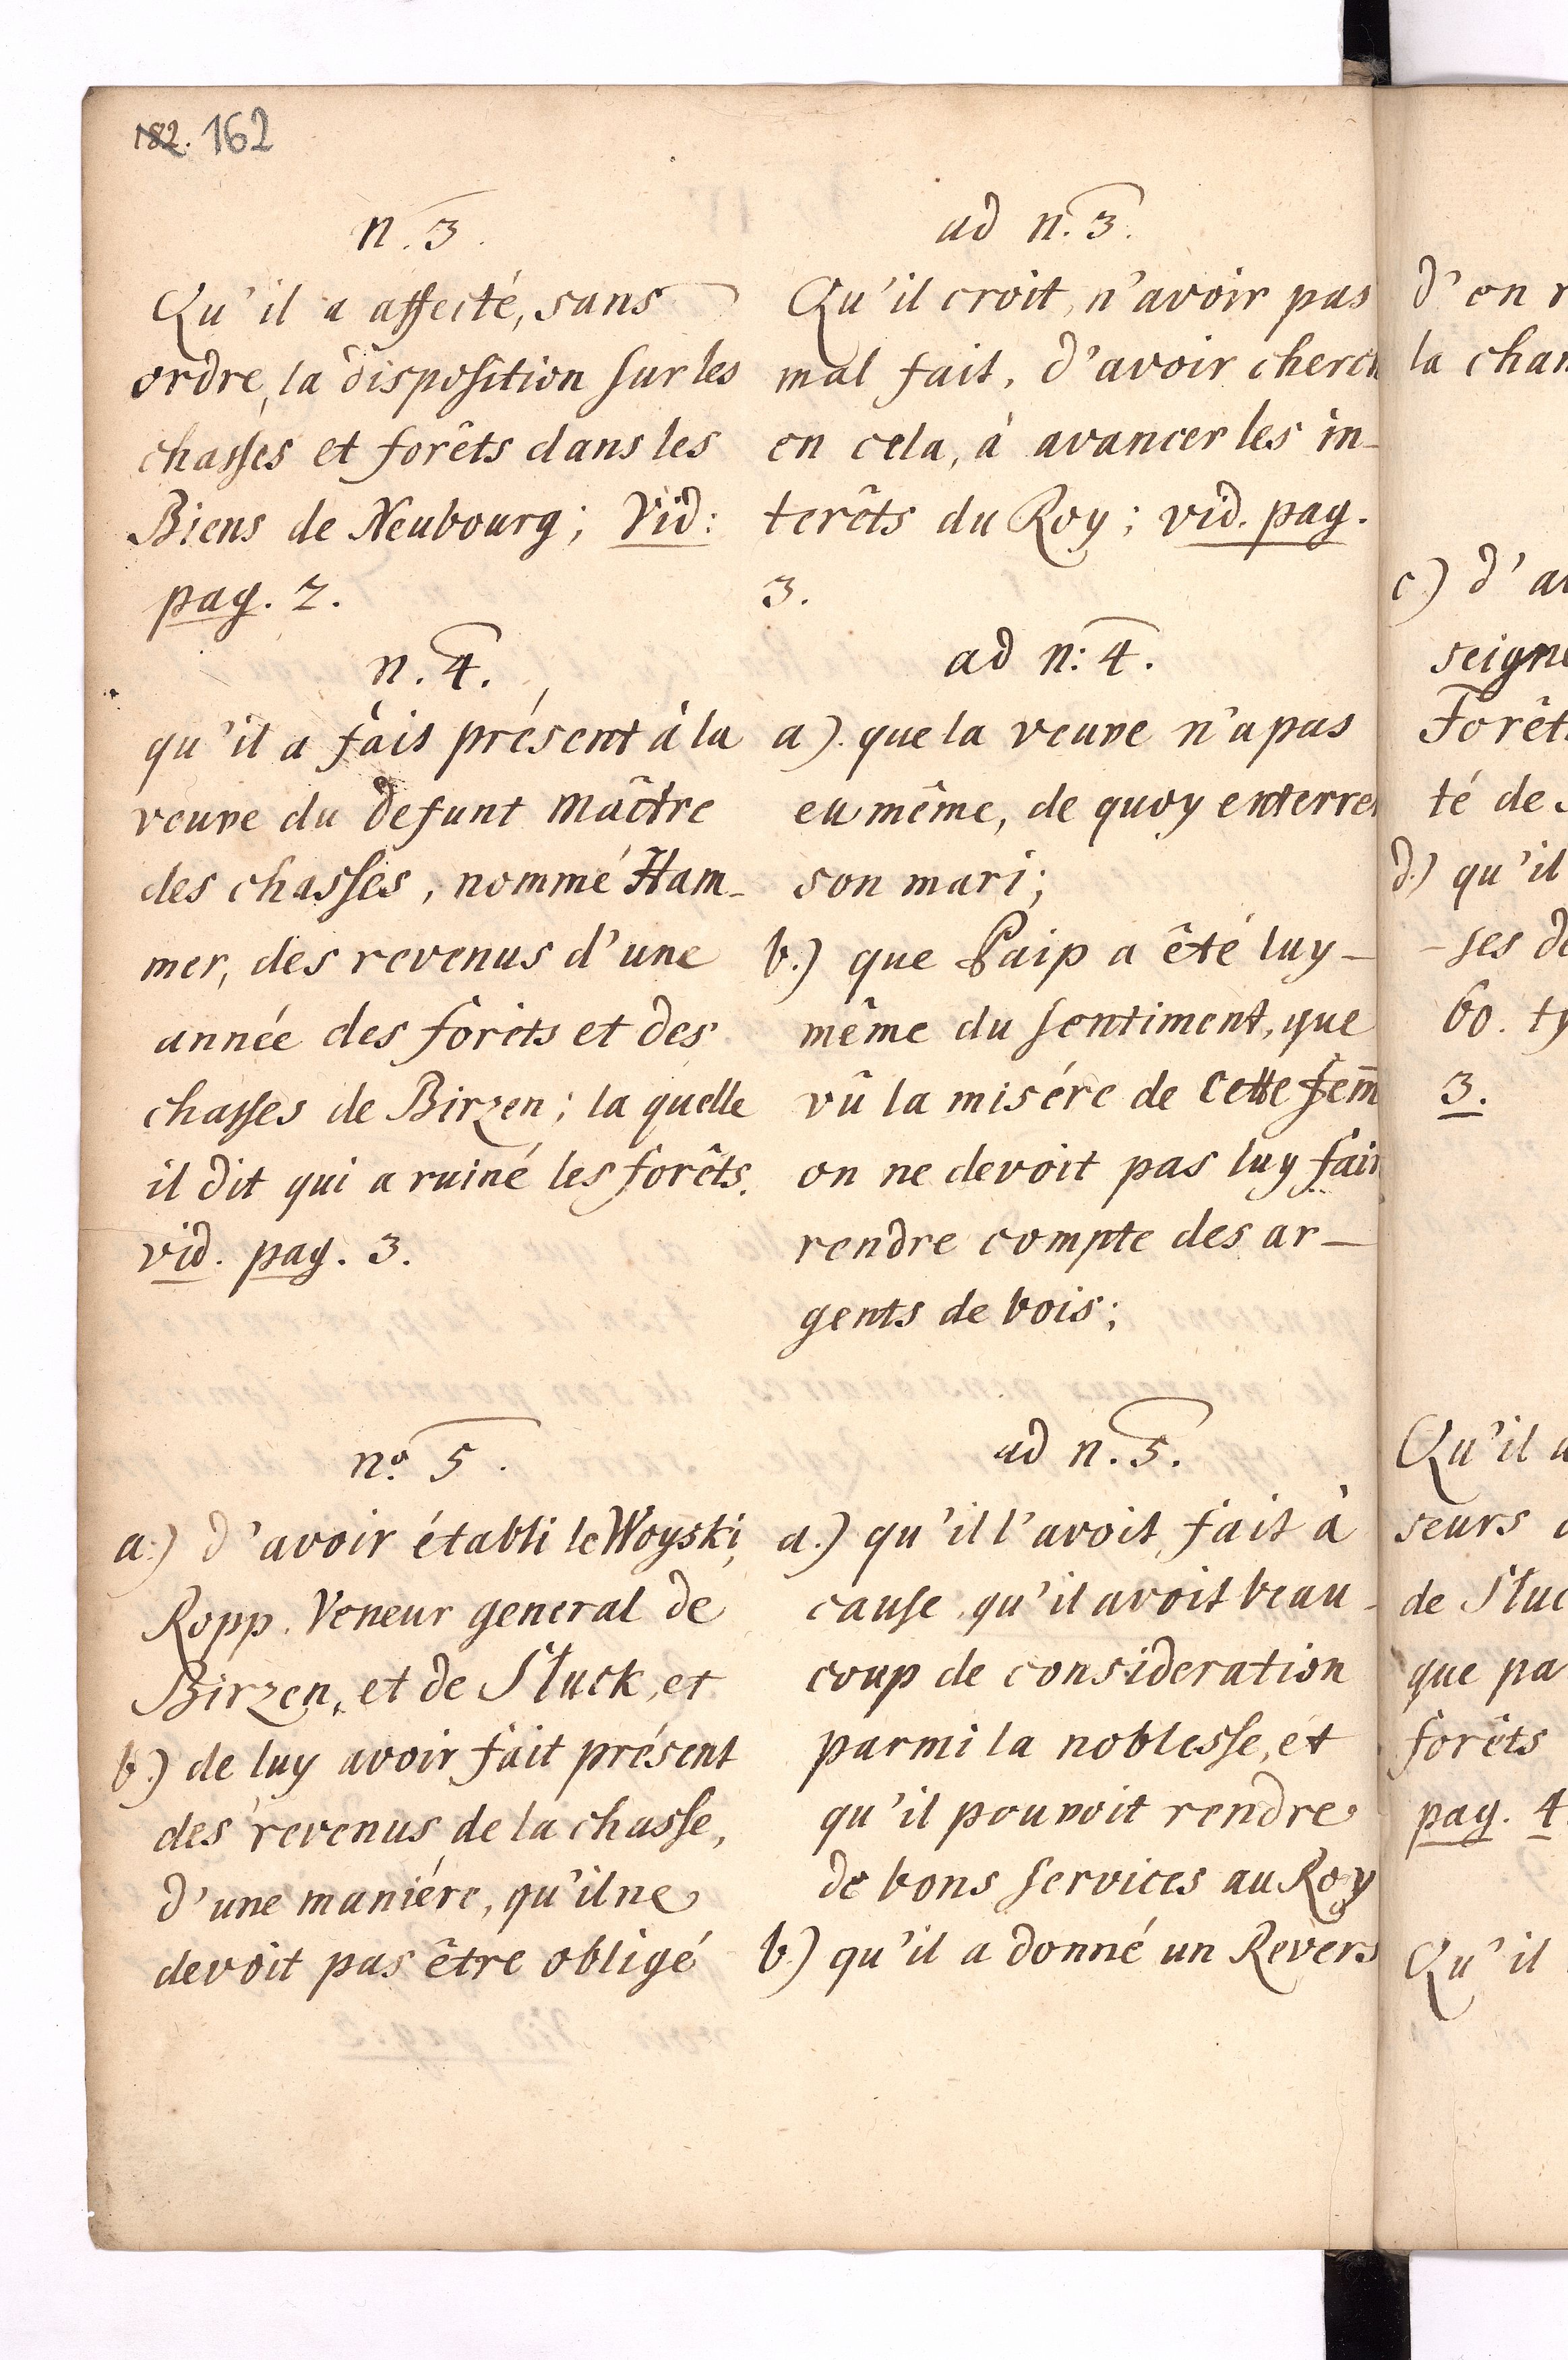 182. 162
n. 3.
Qu'il a affecté, sans
ordre, la disposition sur les
chasses et forêts dans les
Biens de Neubourg; Vid:
pag. 2.
n. 4.
qu'il a fait présent à la
veuve du defunt Maître
des chasses, nommé Ham-
mer, des revenus d'une
année des forêts et des
chasses de Birzen; la quelle
il dit qui a ruiné les forêts.
vid. pag. 3.
no. 5.
a.) d'avoir établi le Woyski,
Ropp. Veneur general de
Birzen, et de Sluck, et
b.) de luy avoir fait présent
des revenus de la chasse,
d'une maniére, qu'il ne
devoit pas être obligé
ad n. 3.
Qu'il croit, n'avoir pas
mal fait, d'avoir cherch
en cela, à avancer les in-
terêts du Roy; vid. pag.
3.
ad n: 4.
a). que la veuve n'a pas
eu même, de quoy enterrer
son mari;
b.) que Paip a êté luy-
même du sentiment, que
vû la misére de cette fem̄
on ne devoit pas luy fair
rendre compte des ar-
gents de bois;
ad n. 5.
a.) qu'il l'avoit fait à
cause, qu'il avoit beau-
coup de consideration
parmi la noblesse, et
qu'il pouvoit rendre
de bons services au Roy
b.) qu'il a donné un Revers
d'en r
la chan
c.) d'av
seigne
Forêt
té de
d.) qu'il
-ses de
60. ty
3.
Qu'il a
seurs
de Sluc
que pa
forêts
pag. 4
Qu'il